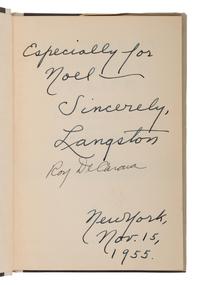 Especially for
Noel—
Sincerely,
Langston
Roy DeCarava
New York,
Nov. 15,
1955.